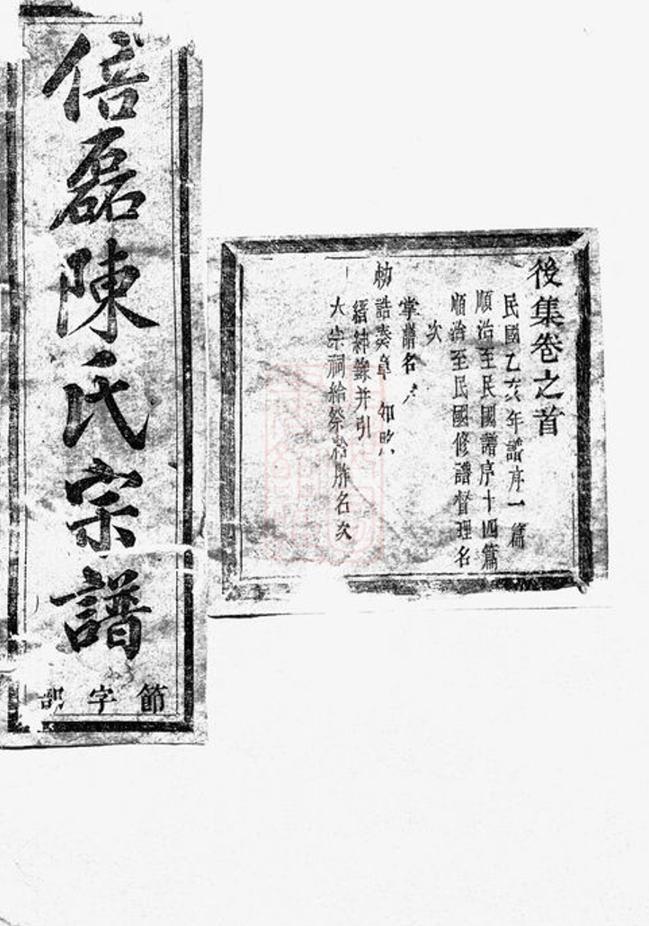 倍磊陳氏宗譜
節字部
後集卷之首
民國乙亥年譜序一篇
順治至民國譜序十四篇
順治至民國修譜督理名
次
掌譜名
勅誥奏章
縉紳錄并引
大宗祠給祭給胙名次